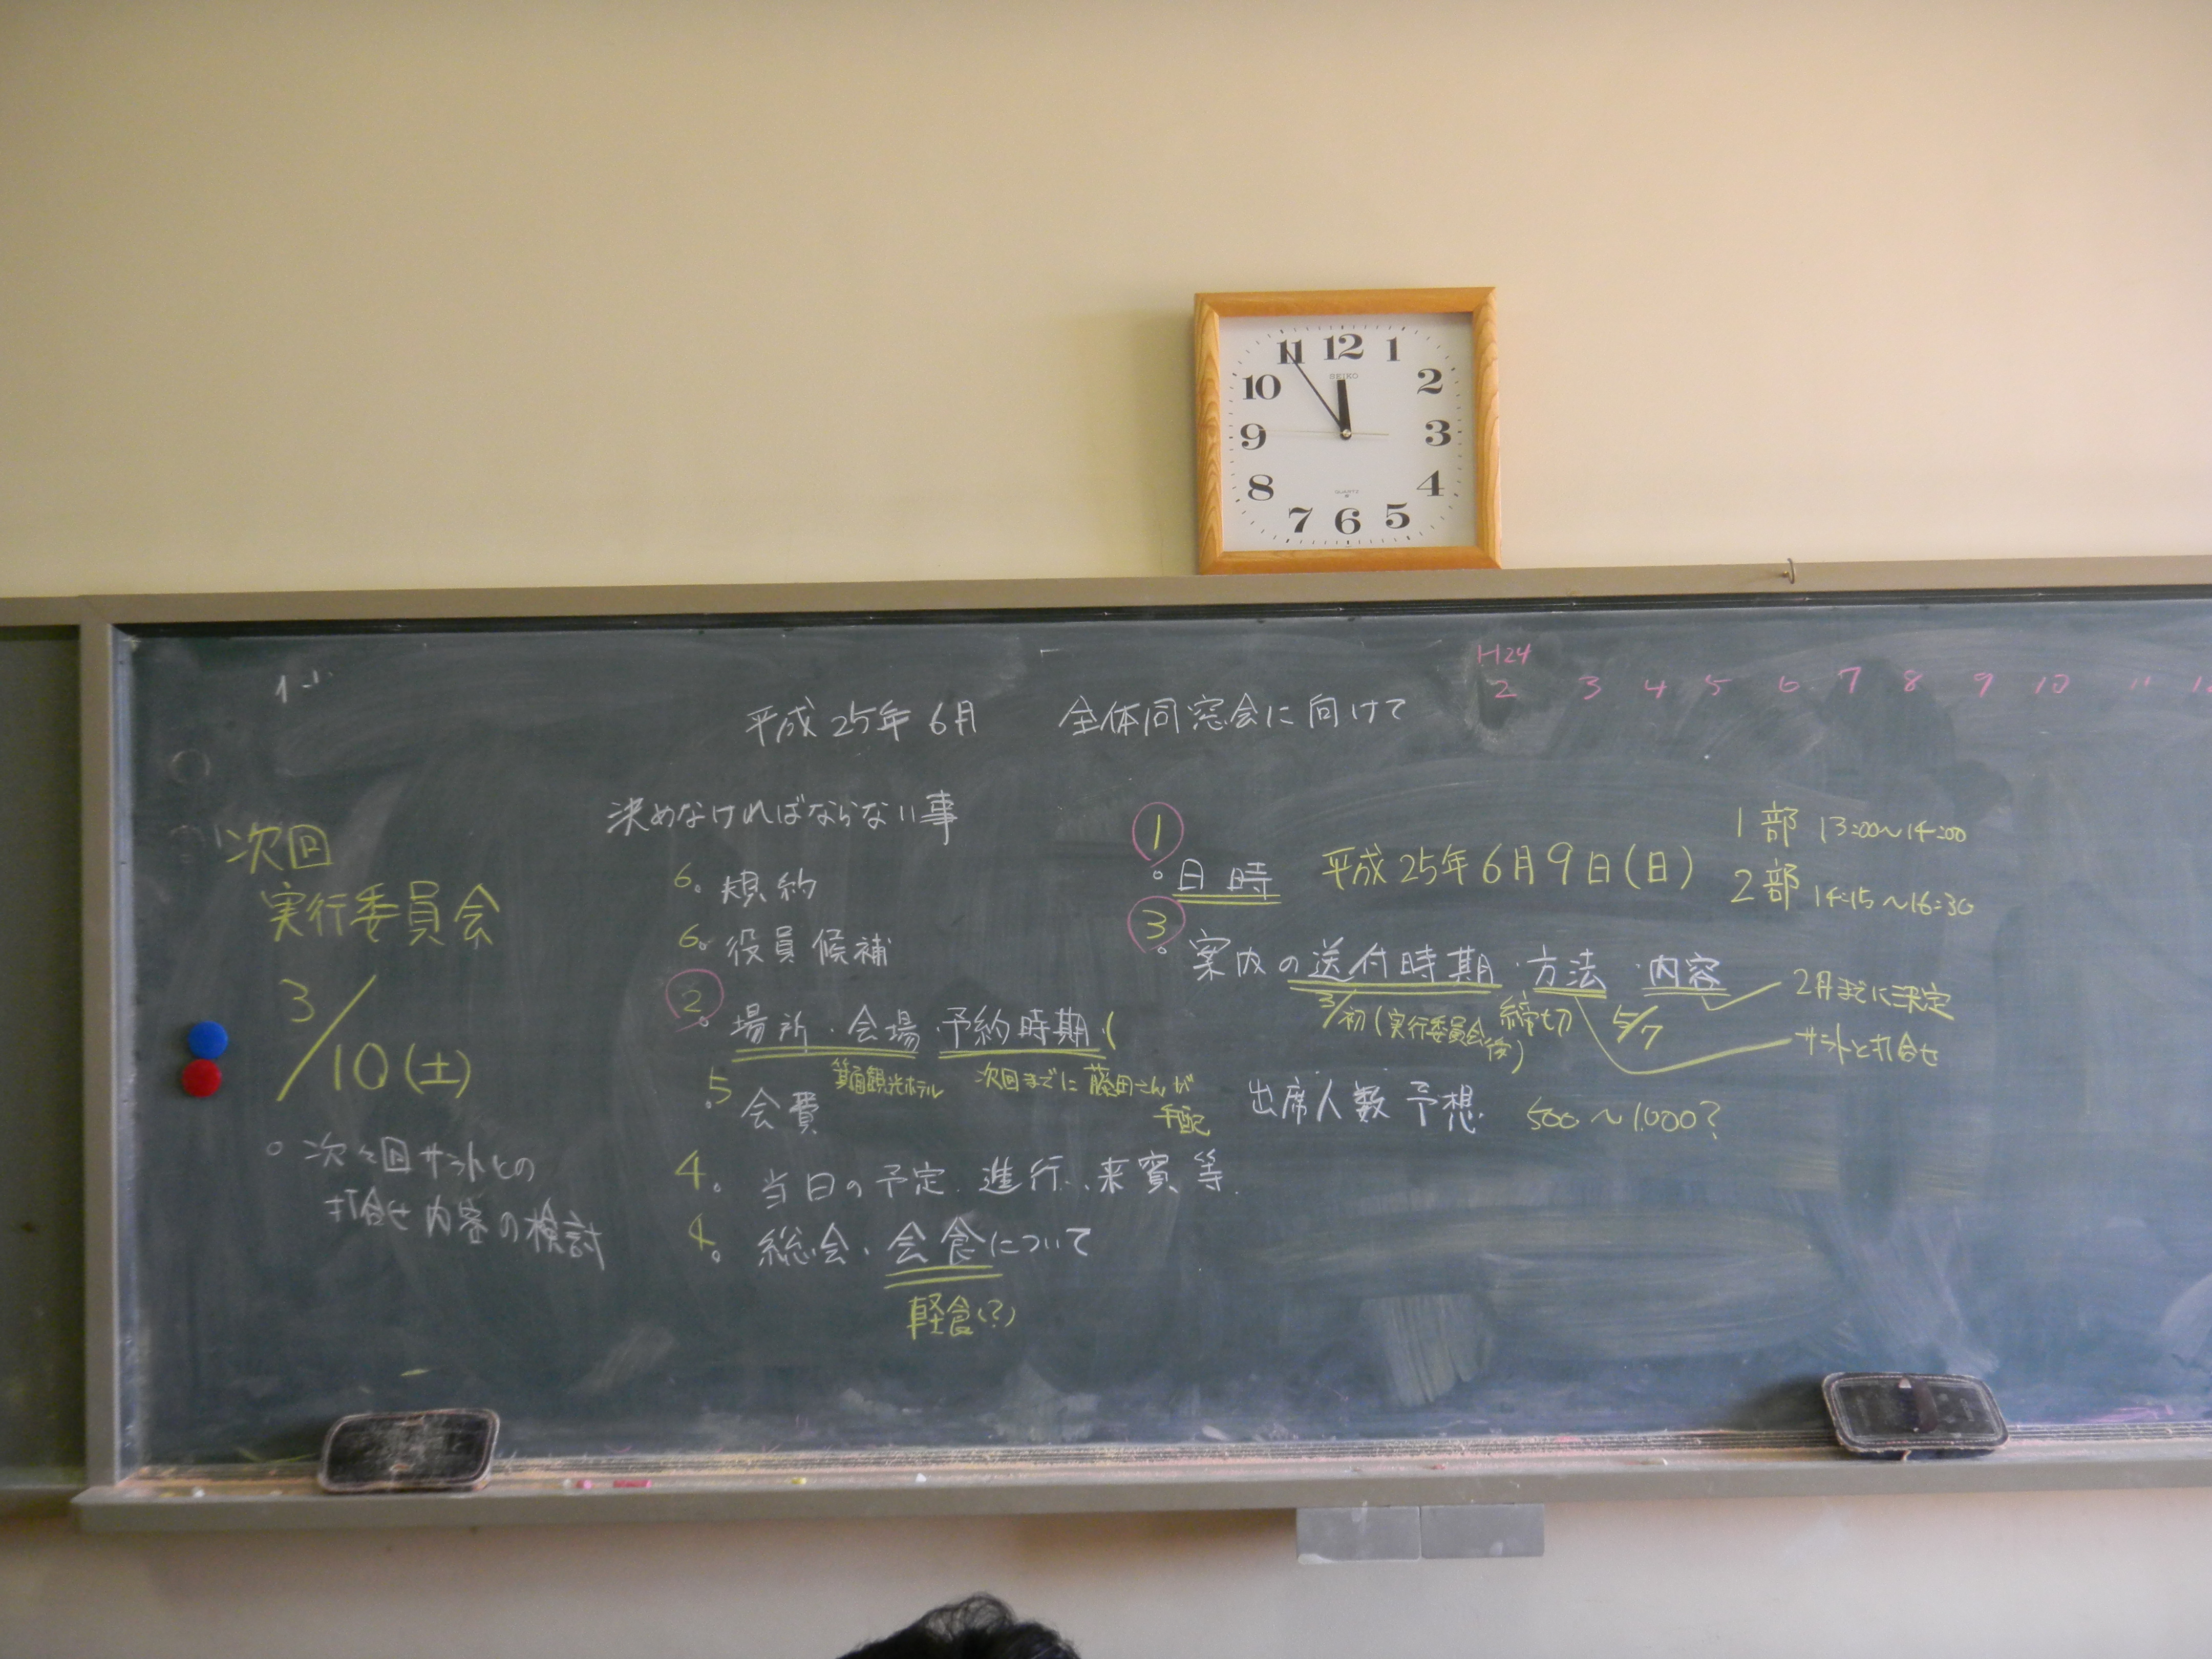 11 12 1
SEIKO
10 2
9 3
8 4
Quartz
7 6 5
H24
2 3 4 5 6 7 8 9 10 11
平成25年6月 全体同窓会に向けて
次回
実行委員会
3/10(土)
○ 次々回サラトとの
打合せ内容の検討
決めなければならない事
6。規約
6。役員候補
2。場所・会場・予約時期・(
箕面観光ホテル 次回までに藤田さんが
手配
5。会費
4。当日の予定、進行、来賓等
4。総会、会食について
軽食(?)
1
。日時 平成25年6月9日(日)
1部 13:00〜14:00
2部 14:15〜16:30
3
。案内の送付時期・方法・内容
3/初(実行委員会後) 締切 5/7
2月までに決定
サラトと打合せ
出席人数予想 500〜1,000?